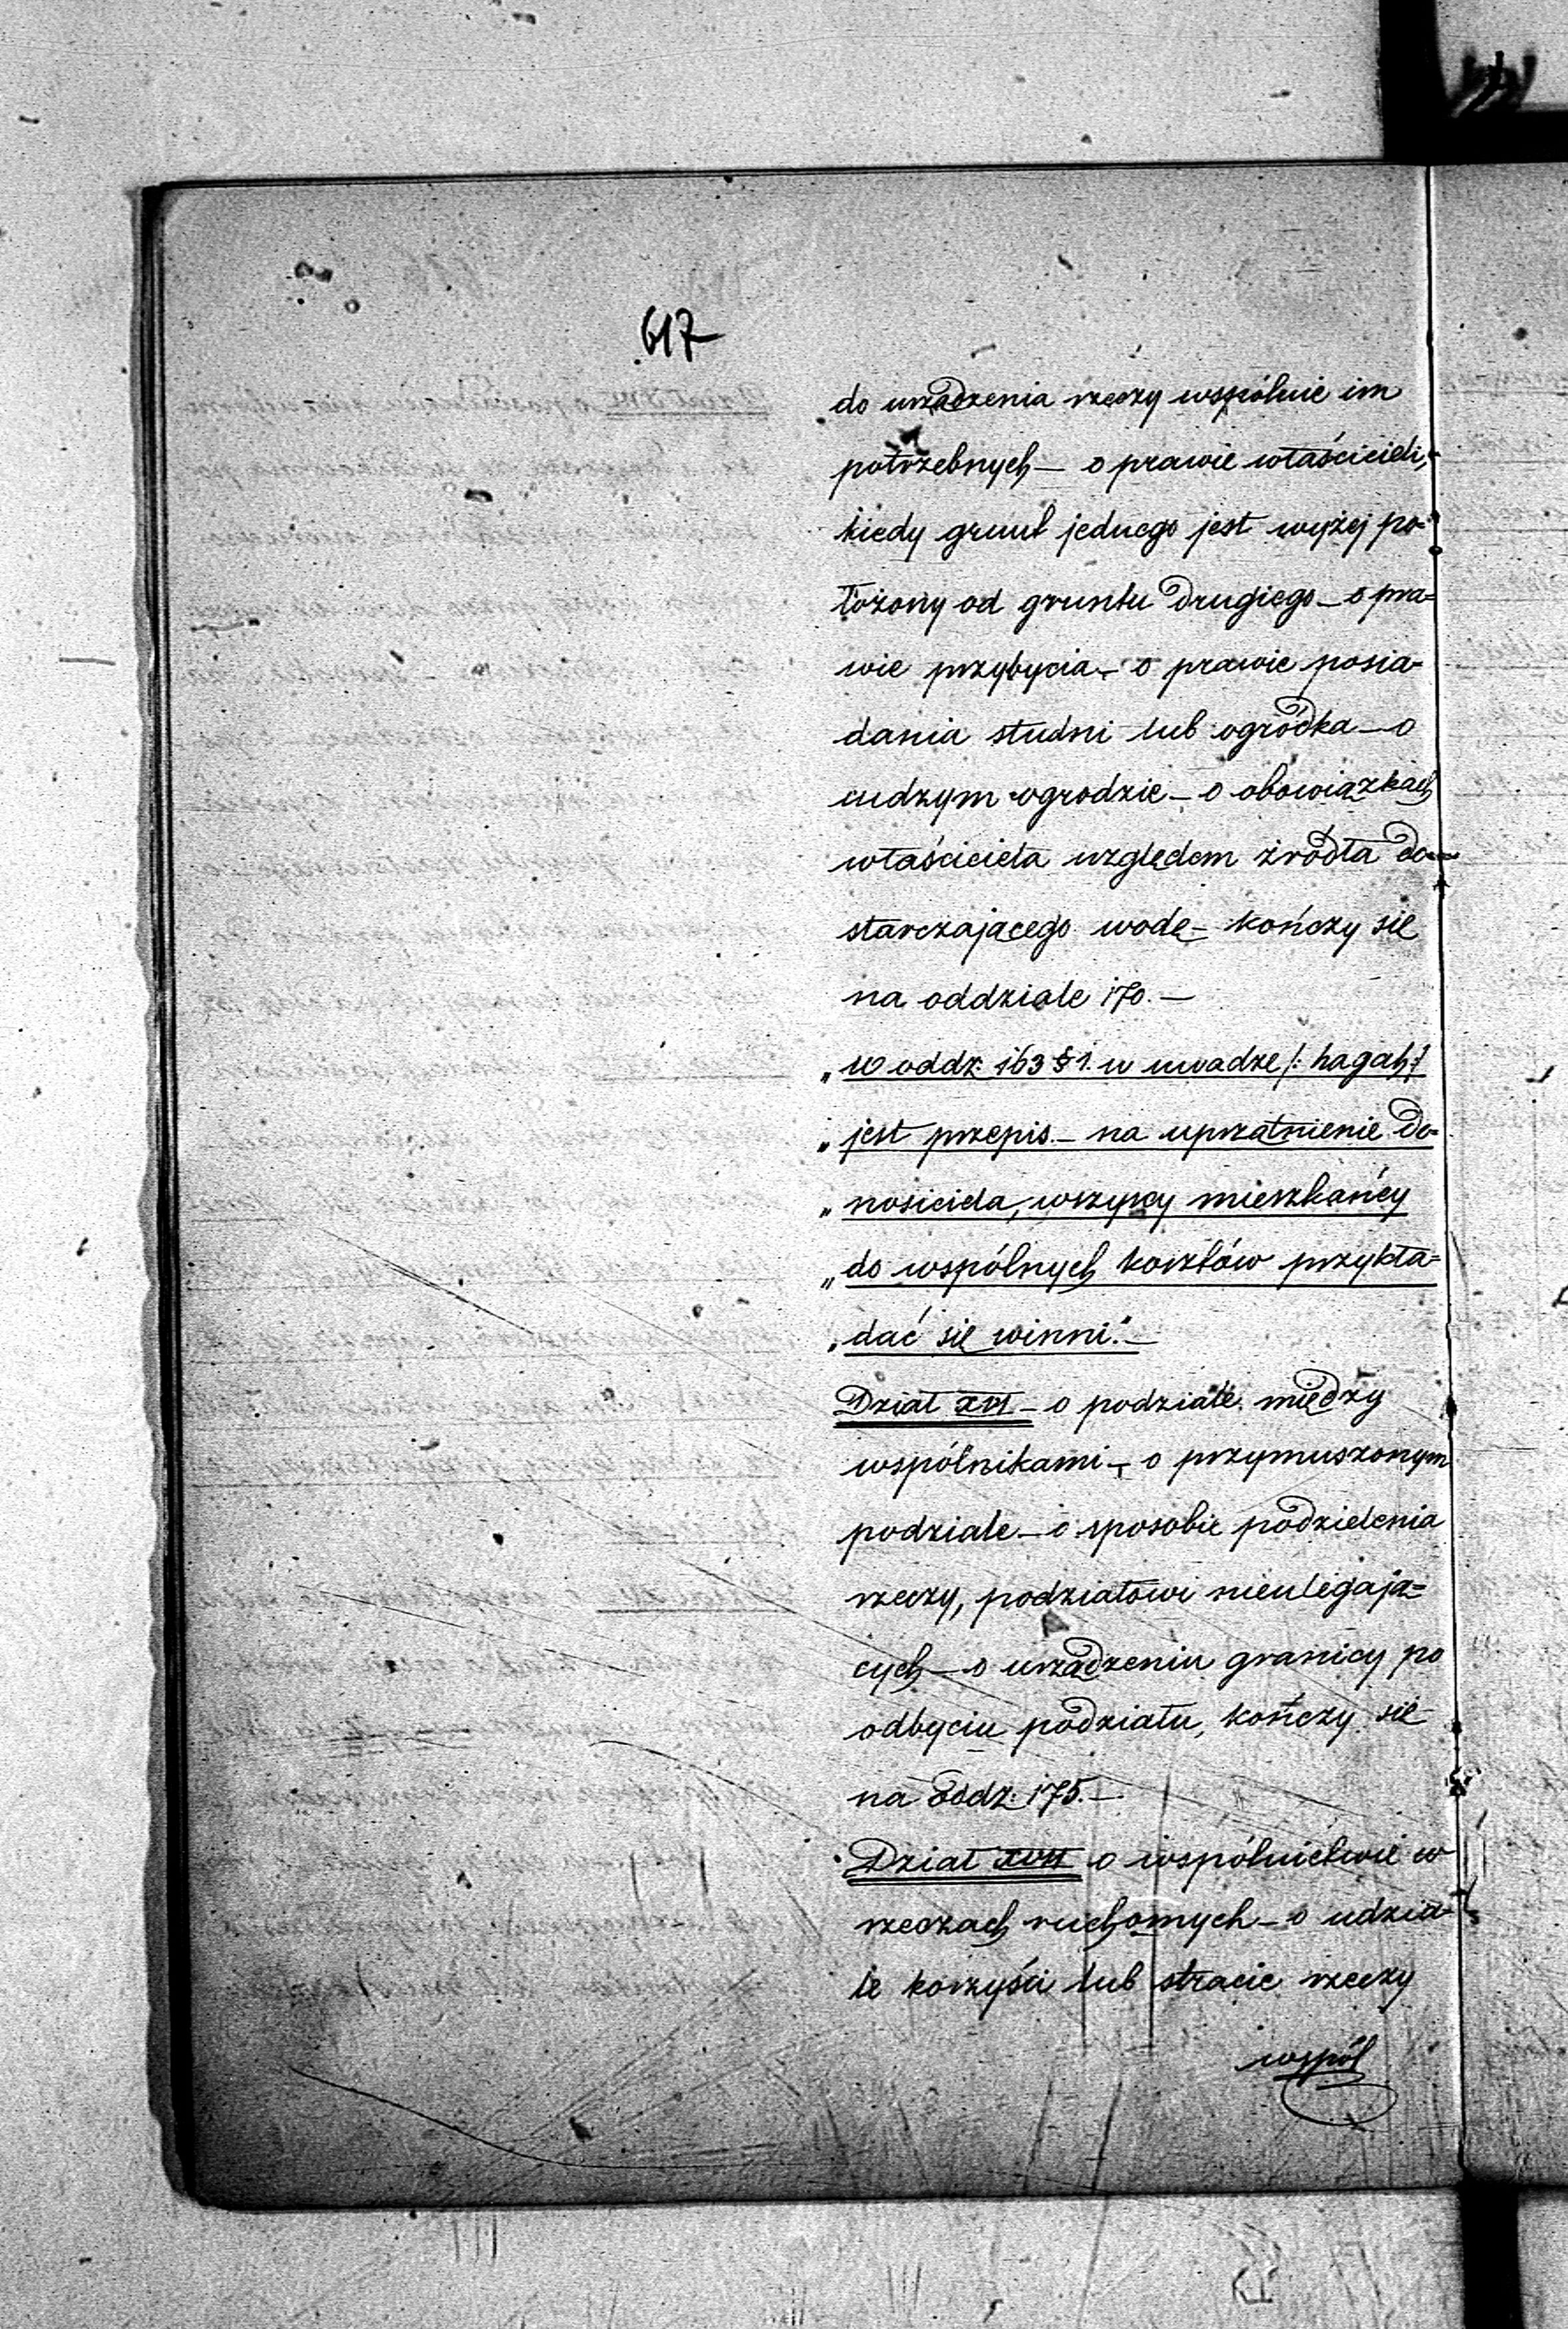 617
do urządzenia rzeczy wspólnie im
potrzebnych — o prawie właścicieli,
kiedy grunt jednego jest wyżej po-
łożony od gruntu drugiego — o pra=
wie przybycia — o prawie posia-
dania studni lub ogródka — o
cudzym ogrodzie — o obowiązkach
właściciela względem źródła do-
starczającego wodę — kończy się
na oddziale 170. —
„w oddz: 163 § 1. w uwadze /: hagah :/
„jest przepis — na uprzątnienie do-
„nosiciela, wszyscy mieszkańcy
„do wspólnych kosztów przykła=
„dać się winni." —
Dział XVI — o podziale między
wspólnikami — o przymuszonym
podziale — o sposobie podzielenia
rzeczy, podziałowi nieulegają=
cych — o urządzeniu granicy po
odbyciu podziału, kończy się
na oddz: 175. —
Dział XVII o wspólnictwie w
rzeczach ruchomych — o udzia-
le korzyści lub stracie rzeczy
wspól